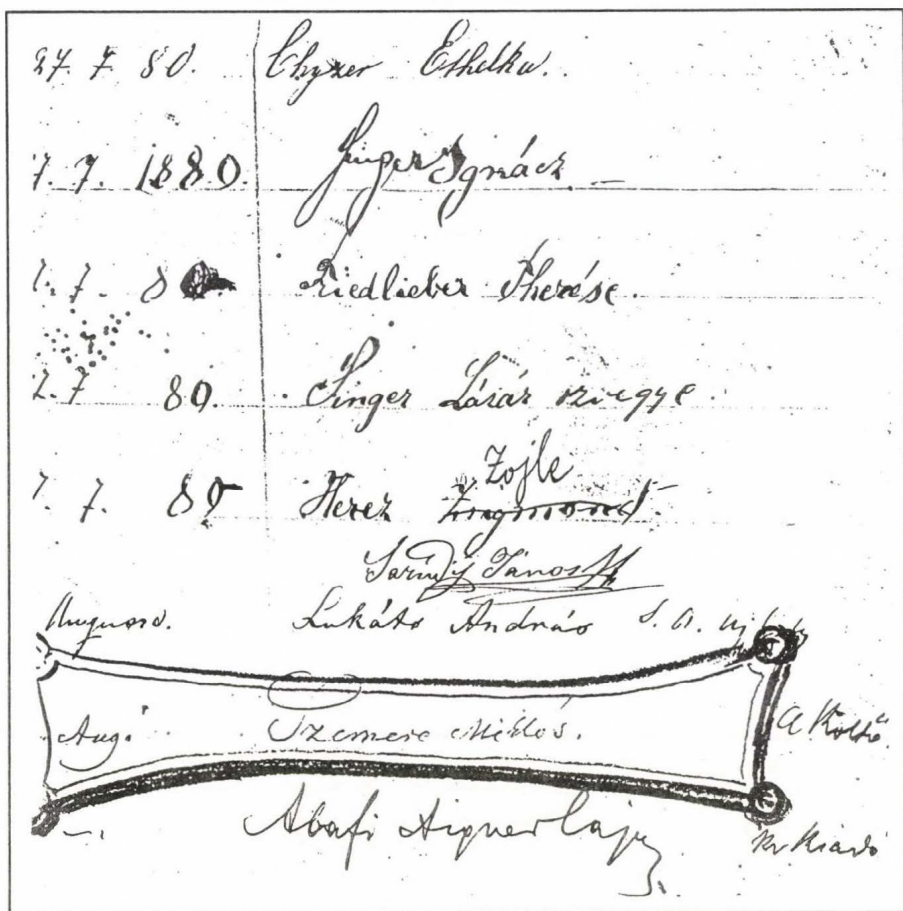 27. 7 80. Chyzer Ethelka.
7. 7. 1880. Singer Ignácz
7. 7. 8 Friedlieber Therése.
2. 7 80. Singer Lázár özvegye.
Zojle
7. 7. 80 Herez Zsigmond.
János
August. Lukáts András S. A.
Aug. Szemere Miklós. A Költő.
Abafi Aigner Lajos
Kv Kiadó